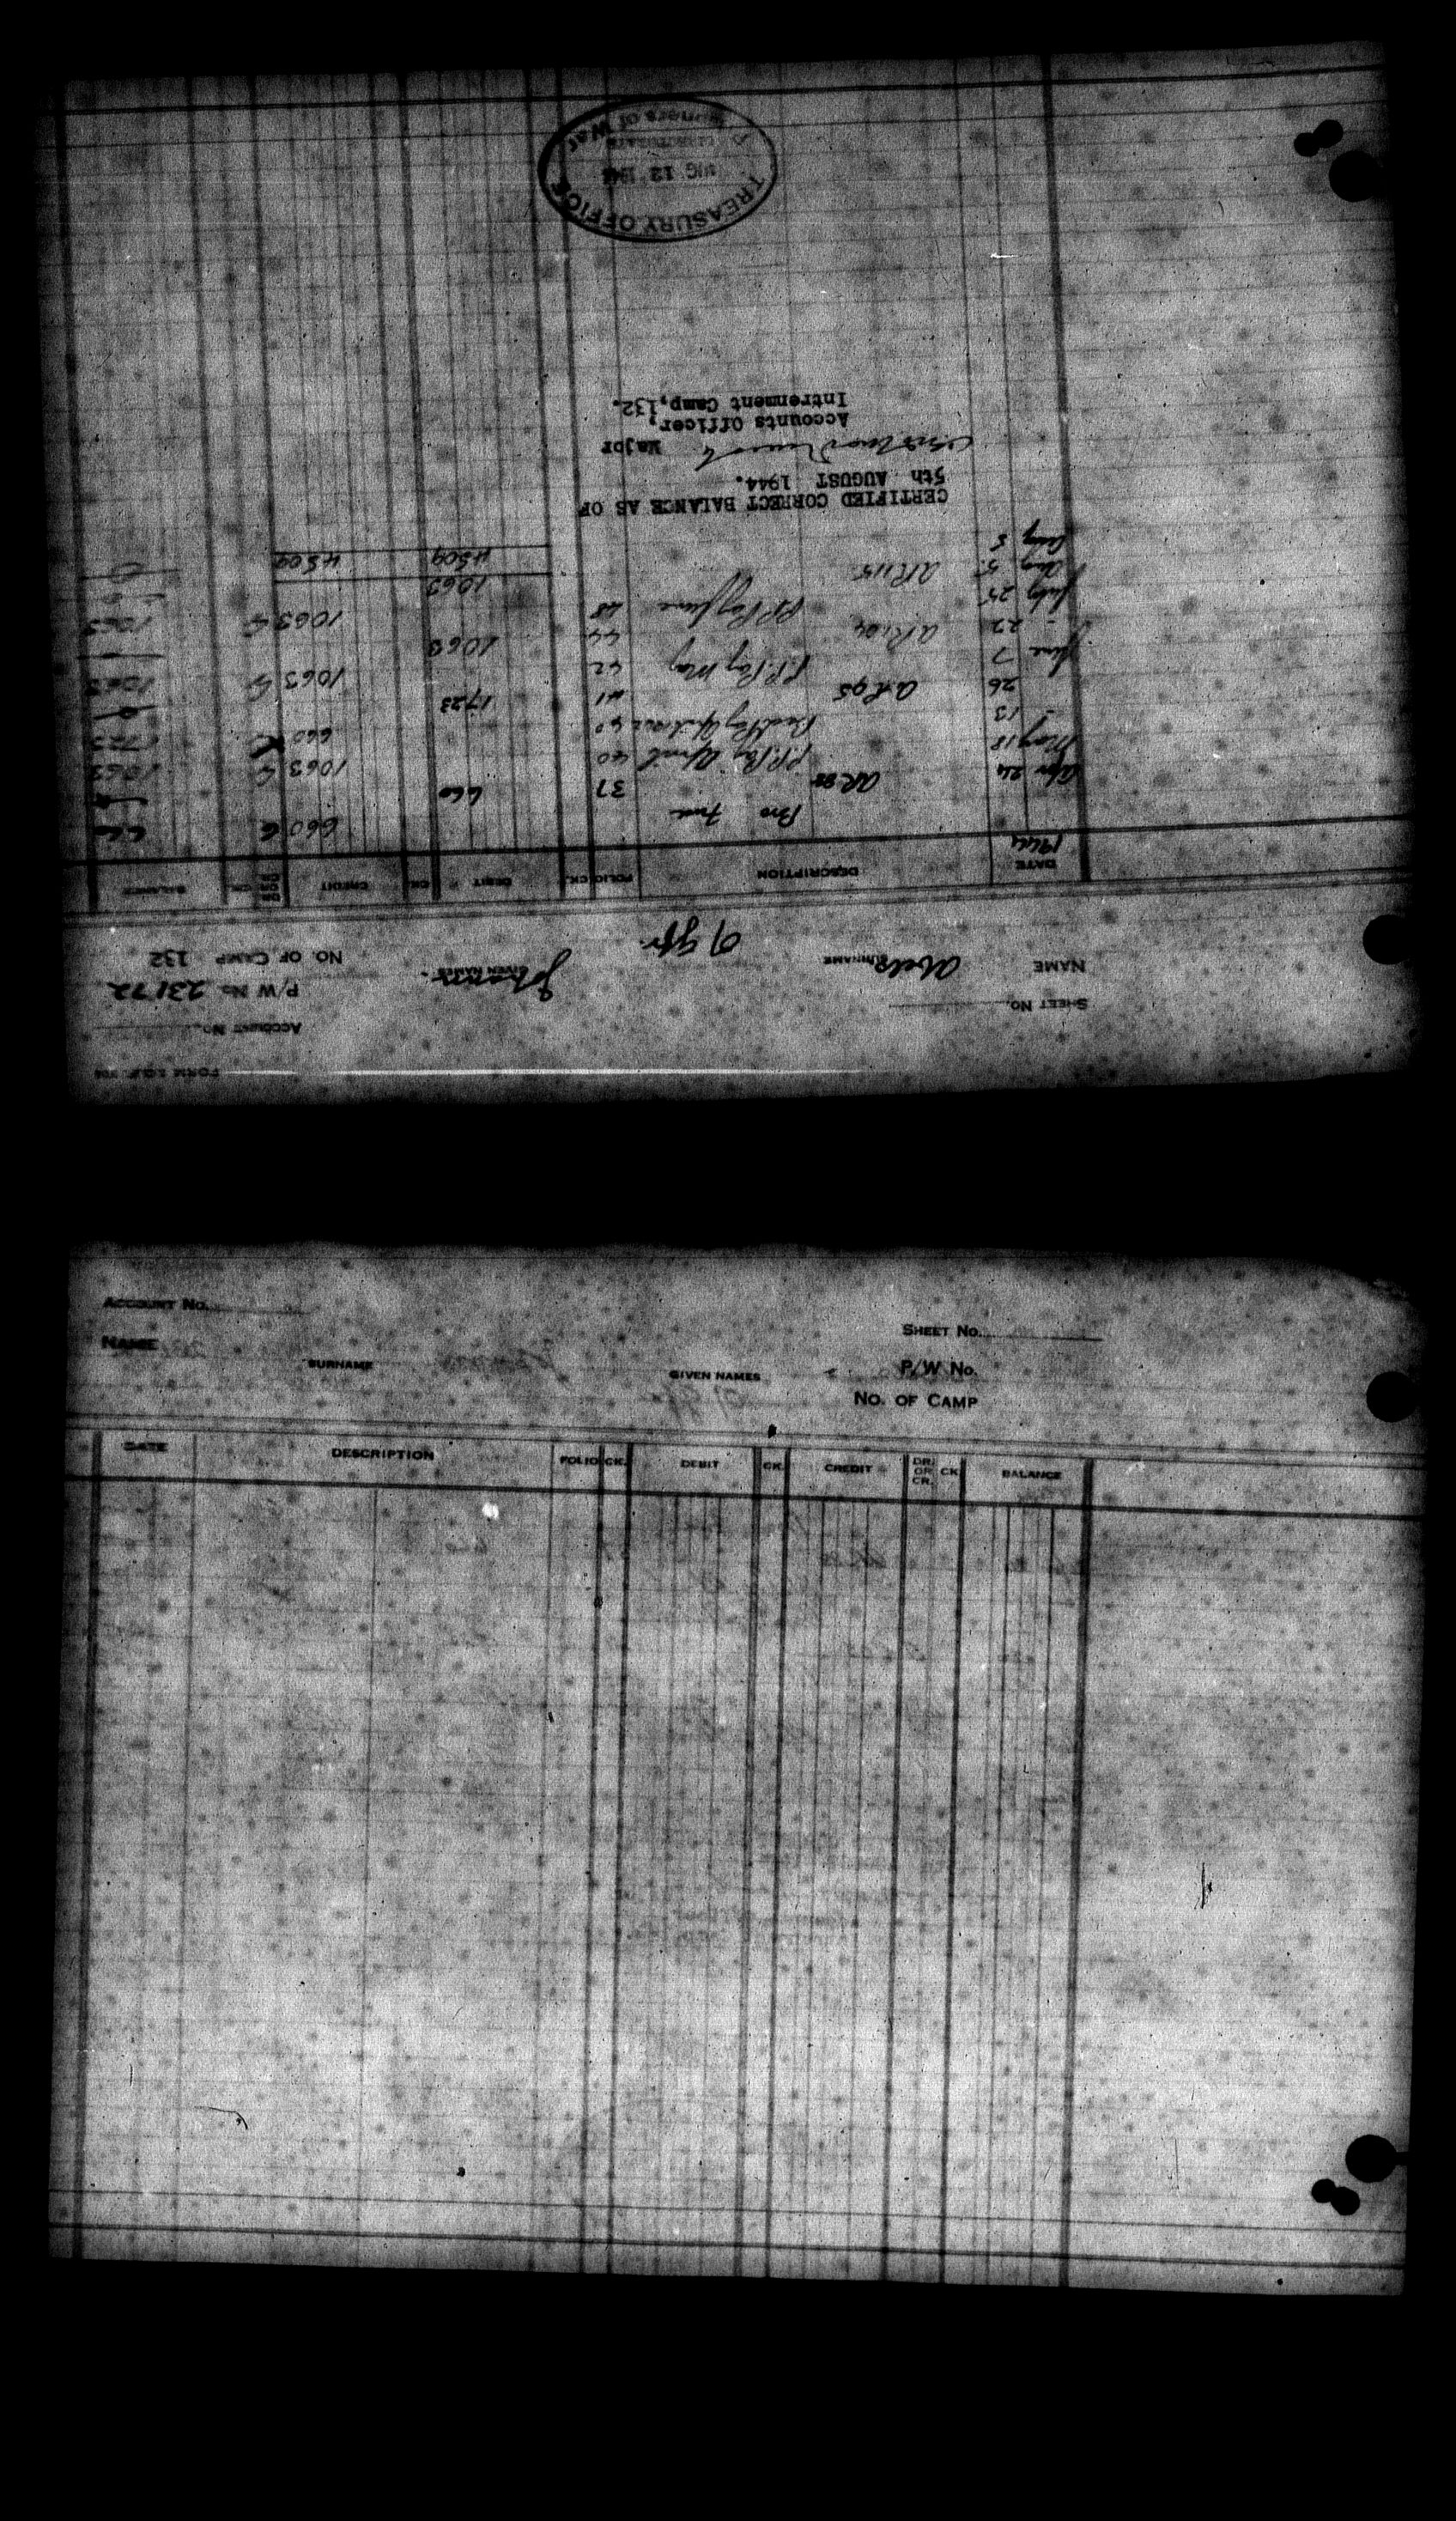 FORM
ACCOUNT No.
SHEET No.
P/W No. 23172
NAME Abel SURNAME Johann GIVEN NAMES
NO. OF CAMP 132
O/Gfr.
DATE DESCRIPTION FOLIO CK. DEBIT CK. CREDIT DR. OR CR. CK. BALANCE
1944
Bro Fwd 660 C 660
Apr 24 AR 88 37 660
May 18 P.P. Pay April 40 1063 C 1063
13 40 660 1723
26 AR 95 41 1723
June 7 P.P. Pay May 42 1063 C 1063
22 AR 104 44 1063
July 25 P.P. Pay June 48 1063 C 1063
Aug 5 AR 115 1063
Aug 5 4509 4509
CERTIFIED CORRECT BALANCE AS OF
5th AUGUST 1944.
Major
Accounts Officer,
Intrenment Camp, 132.
TREASURY OFFICE
AUG 12
Prisoners of War
ACCOUNT No.
SHEET No.
NAME
SURNAME
GIVEN NAMES
P/W No.
NO. OF CAMP
DATE DESCRIPTION FOLIO CK. DEBIT CK. CREDIT DR. OR CR. CK. BALANCE